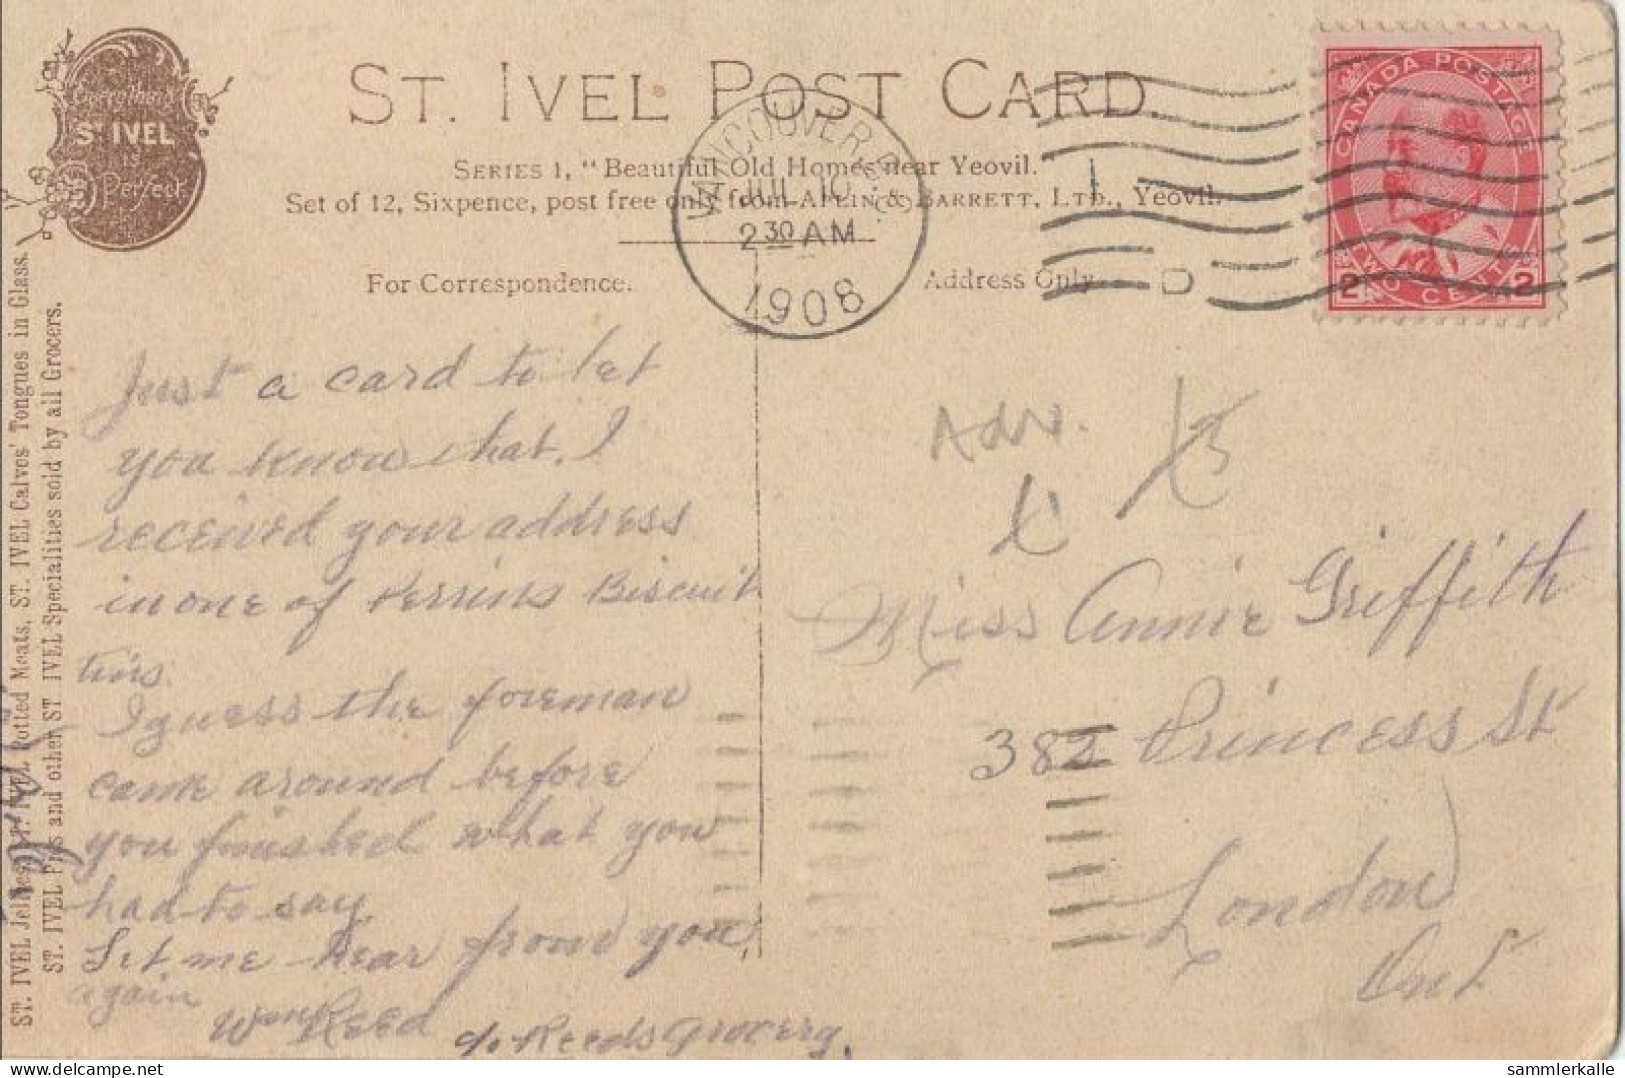 Everything's
St IVEL
is
Perfect
ST. IVEL POST CARD.
SERIES 1, "Beautiful Old Homes near Yeovil.
Set of 12, Sixpence, post free only from APLIN & BARRETT, LTD., Yeovil.
VANCOUVER B.C.
JUL 10
2 30 AM
1908
1
D
CANADA POSTAGE
2 TWO CENTS 2
For Correspondence.
Address Only
ST. IVEL Jellies, ST. IVEL Potted Meats, ST. IVEL Calves' Tongues in Glass.
ST. IVEL Pies and other ST IVEL Specialities sold by all Grocers.
Just a card to let
you know that I
received your address
in one of Perrins Biscuit
tins.
I guess the foreman
came around before
you finished what you
had to say
Let me hear from you
again
Wm Reed
c/o Reeds Grocery.
Adv.
Miss Annie Griffith
382 Princess St
London
Ont
sammlerkalle